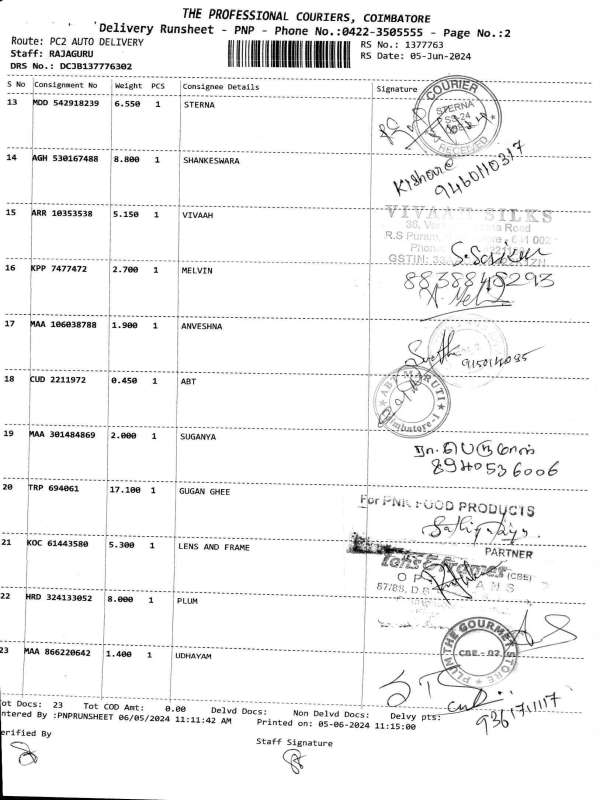 THE PROFESSIONAL COURIERS, COIMBATORE
Delivery Runsheet - PNP - Phone No.:0422-3505555 - Page No.:2
Route: PC2 AUTO DELIVERY RS No.: 1377763
Staff: RAJAGURU RS Date: 05-Jun-2024
DRS No.: DCJB137776302
S No Consignment No Weight PCS Consignee Details Signature
13 MDD 542918239 6.550 1 STERNA
COURIER
STERNA
RECEIVED
14 AGH 530167488 8.800 1 SHANKESWARA
Kishore
9460110317
15 ARR 10353538 5.150 1 VIVAAH
VIVAAH SILKS
Road
R.S Puram
GSTIN: 33
16 KPP 7477472 2.700 1 MELVIN
8838848293
17 MAA 106038788 1.900 1 ANVESHNA
18 CUD 2211972 0.450 1 ABT
ABT MARUTI
Coimbatore-1
19 MAA 301484869 2.000 1 SUGANYA
8940536006
20 TRP 694061 17.100 1 GUGAN GHEE
For PNR FOOD PRODUCTS
PARTNER
21 KOC 61443580 5.300 1 LENS AND FRAME
Lens & Frames (CBE)
87/88, D.B
22 HRD 324133052 8.000 1 PLUM
PLUM THE GOURMET STORE
CBE - 02
23 MAA 866220642 1.400 1 UDHAYAM
9361711117
ot Docs: 23 Tot COD Amt: 0.00 Delvd Docs: Non Delvd Docs: Delvy pts:
ntered By :PNPRUNSHEET 06/05/2024 11:11:42 AM Printed on: 05-06-2024 11:15:00
erified By Staff Signature